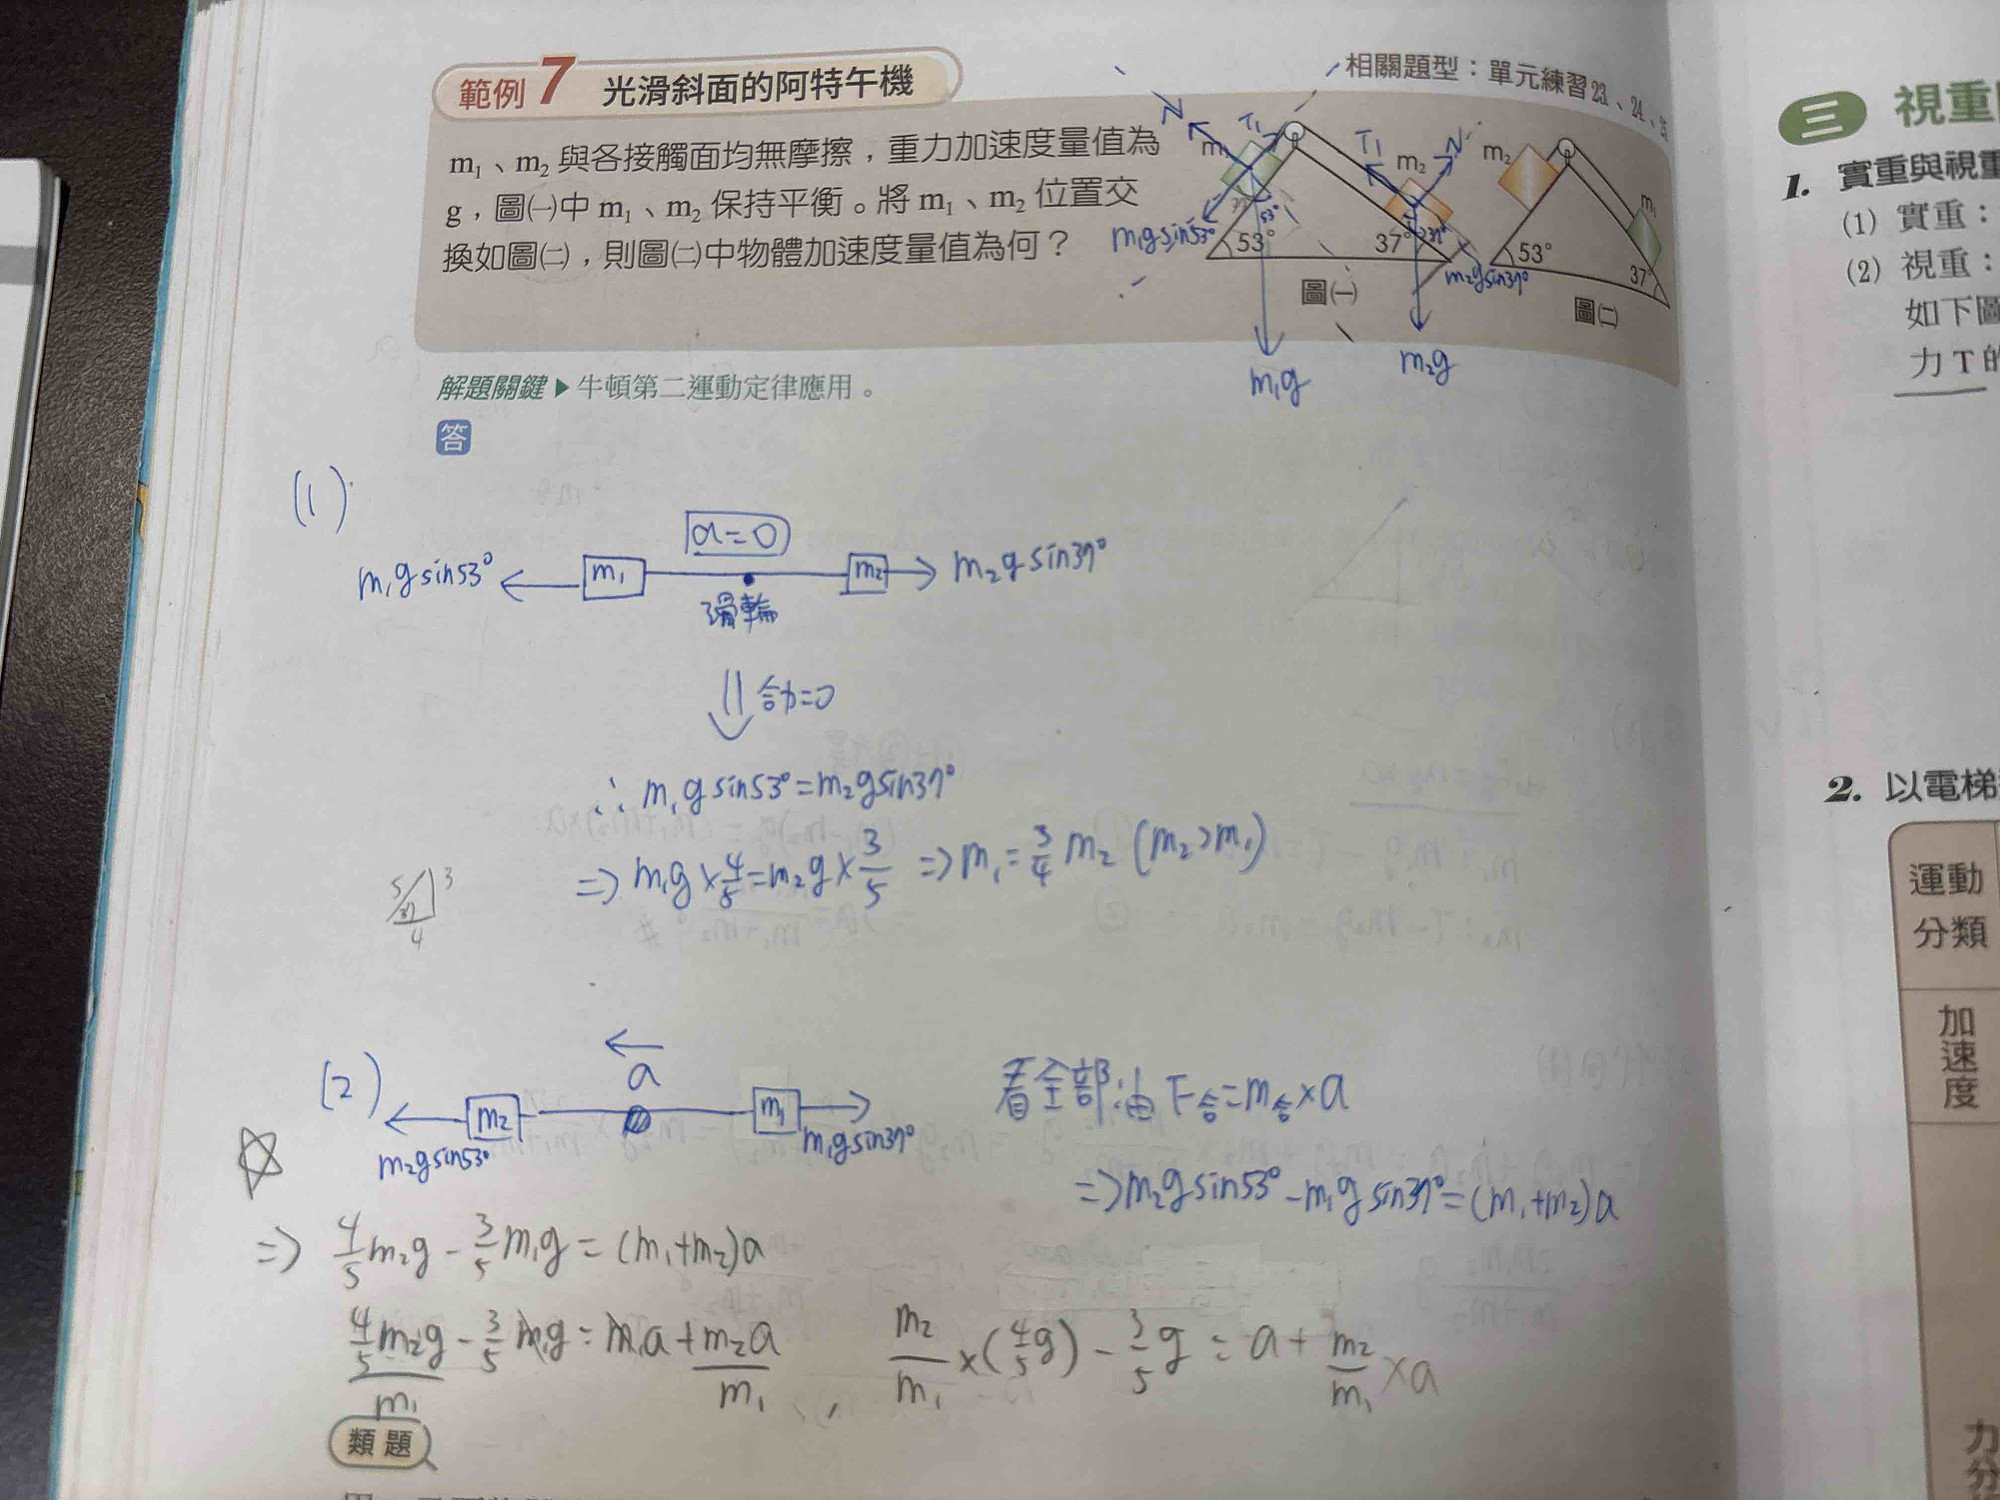 範例 7 光滑斜面的阿特午機
相關題型：單元練習 23、24、
m₁、m₂ 與各接觸面均無摩擦，重力加速度量值為
g，圖㈠中 m₁、m₂ 保持平衡。將 m₁、m₂ 位置交
換如圖㈡，則圖㈡中物體加速度量值為何？
N T₁ T₁ N
m₂ m₂ m₁
m₁gsin53° 53° 53° 37° 37° m₂gsin37° 53° 37°
圖㈠ 圖㈡
m₁g m₂g
解題關鍵▶牛頓第二運動定律應用。
答
(1)
a=0
m₁gsin53° m₁ m₂ m₂gsin37°
滑輪
合力=0
∴ m₁gsin53°=m₂gsin37°
=> m₁g×4/5=m₂g×3/5 => m₁=3/4 m₂ (m₂>m₁)
5 3 37 4
(2) a
m₂ m₁
m₂gsin53° m₁gsin37°
看全部:由F合=m合×a
=>m₂gsin53°-m₁gsin37°=(m₁+m₂)a
=> 4/5 m₂g - 3/5 m₁g = (m₁+m₂)a
4/5 m₂g/m₁ - 3/5 m₁g = m₁a + m₂a/m₁ , m₂/m₁ ×(4/5 g) - 3/5 g = a + m₂/m₁ ×a
類題
三 視重
1. 實重與視重
(1) 實重：
(2) 視重：
如下圖
力 T 的
2. 以電梯
運動
分類
加速度
力